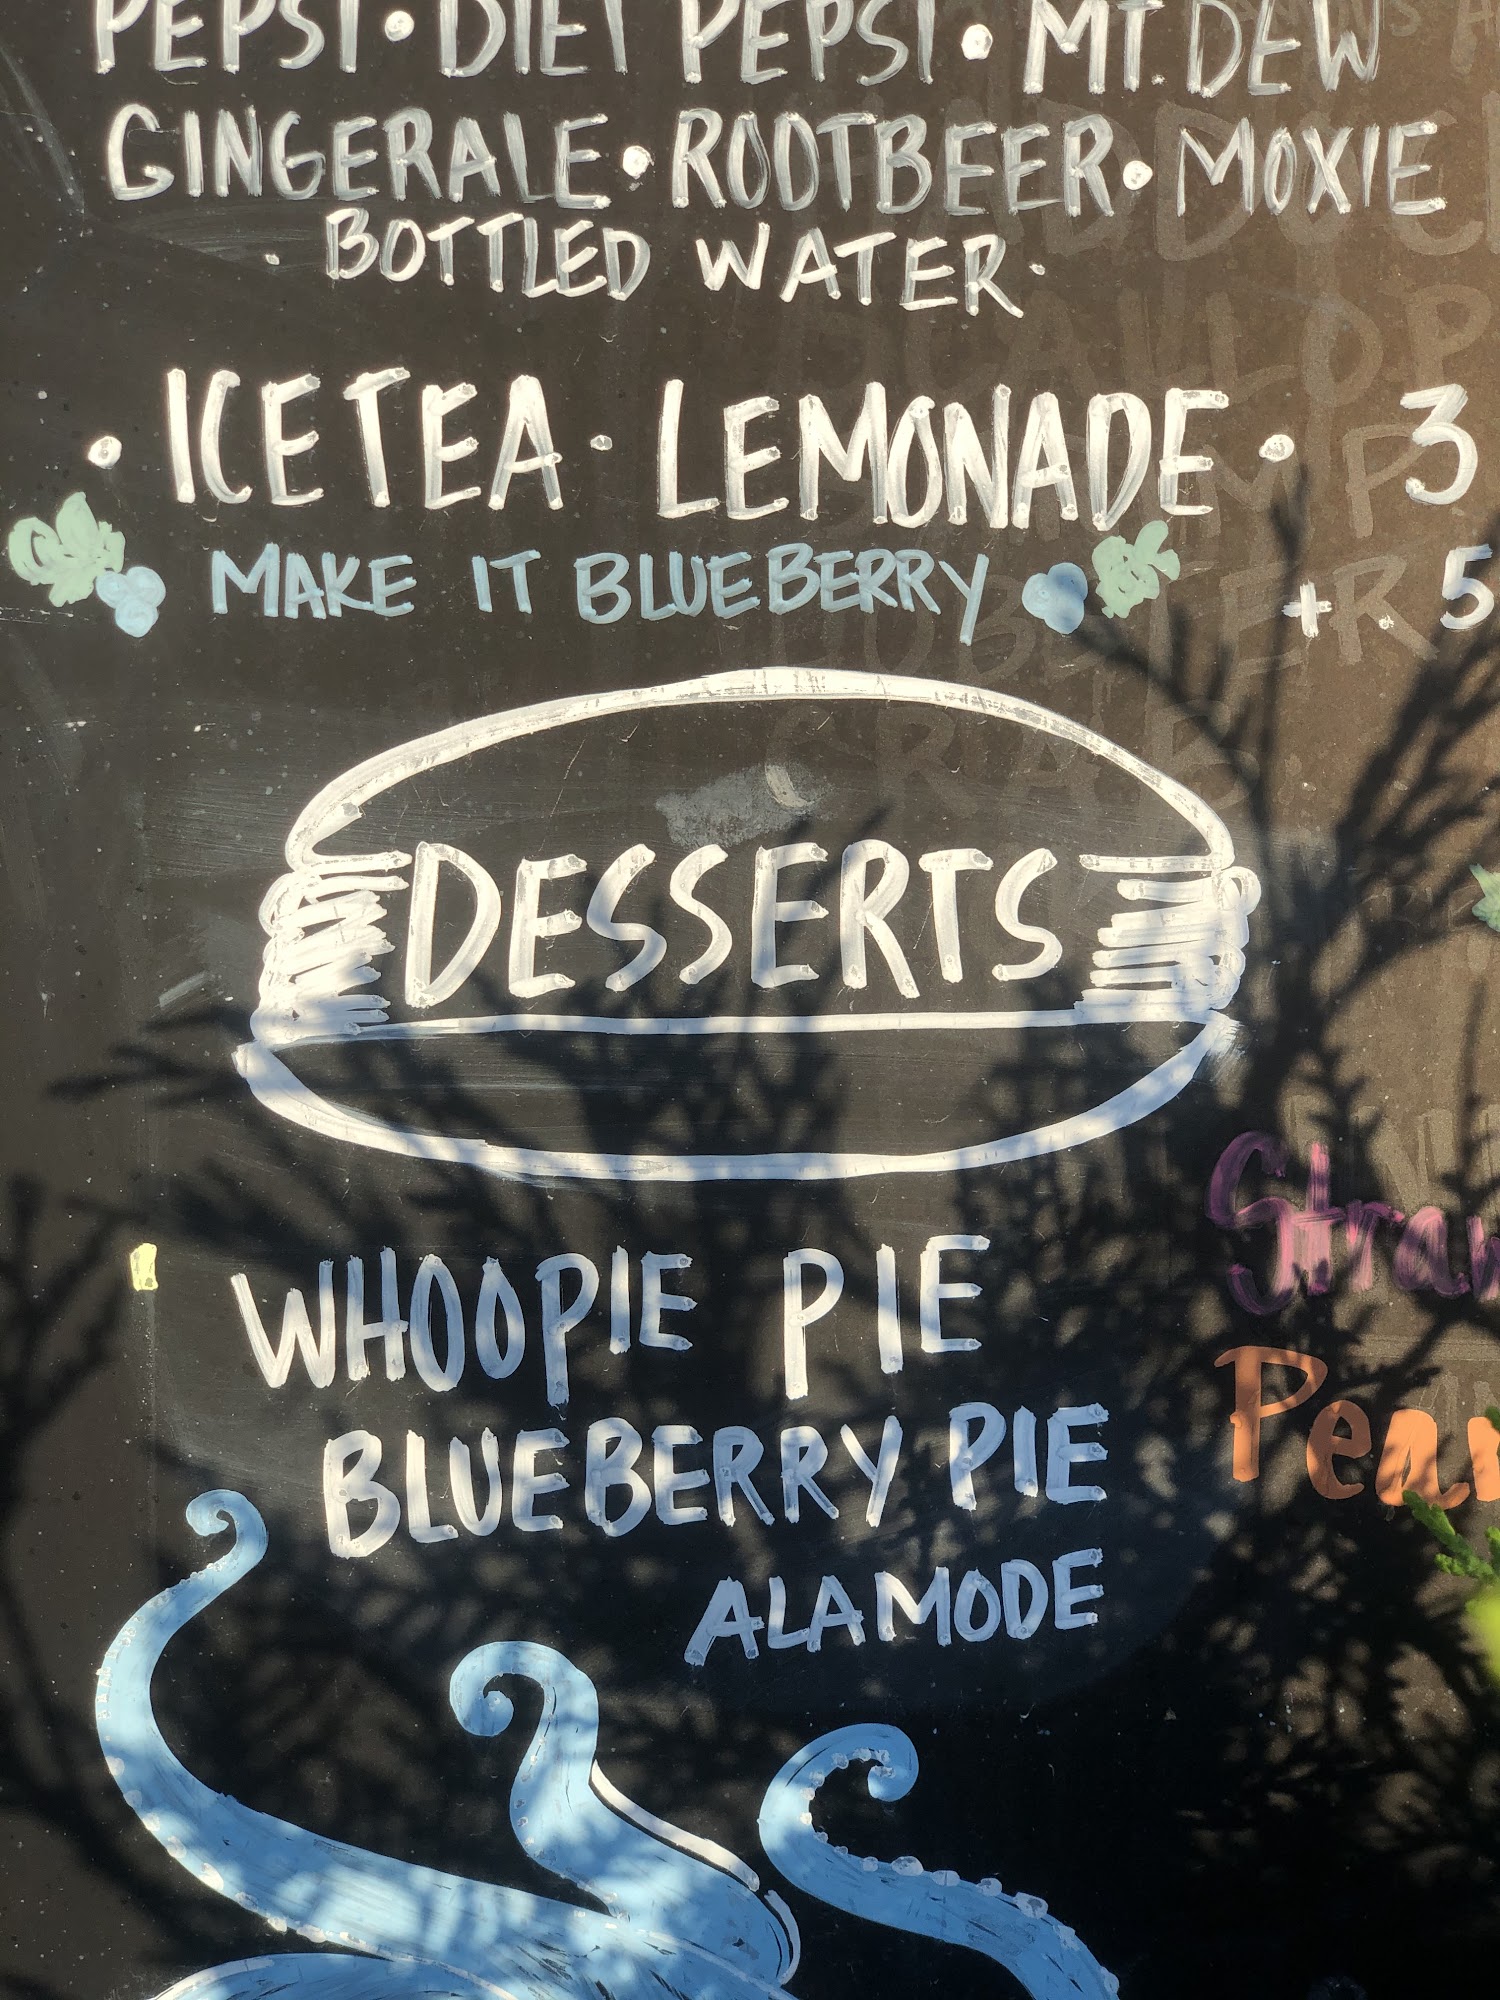 PEPSI • DIET PEPSI • MT. DEW
GINGERALE • ROOTBEER • MOXIE
· BOTTLED WATER ·
• ICE TEA • LEMONADE • 3
MAKE IT BLUEBERRY + .5
DESSERTS
WHOOPIE PIE
BLUEBERRY PIE
ALAMODE